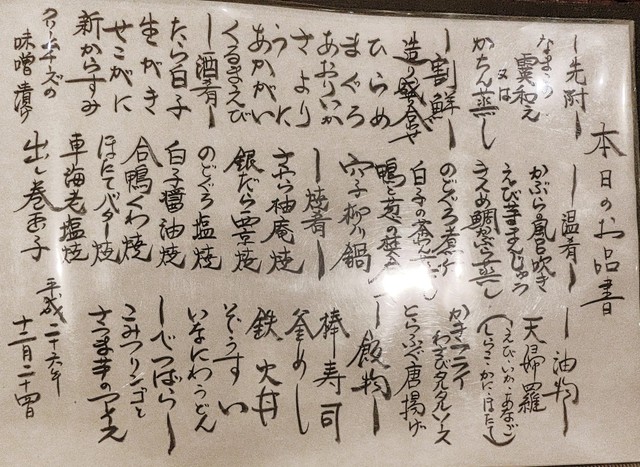 本日のお品書
―先附―
なまこの
霙和え
又は
かちん蒸し
―割鮮―
造り盛り合せ
ひらめ
まぐろ
あおりいか
さより
うに
あかがい
くるまえび
―酒肴―
たら白子
生がき
せこがに
新からすみ
クリームチーズの
味噌漬け
―温肴―
かぶらの風呂吹き
えび芋まんじゅう
きんめ鯛かぶら蒸し
のどぐろ煮付
白子の茶わん蒸し
鴨と葱の
穴子柳川鍋
―焼肴―
さわら柚庵焼
銀だら西京焼
のどぐろ塩焼
白子醤油焼
合鴨くわ焼
ほたてバター焼
車海老塩焼
出し巻玉子
―油物―
天婦羅
(えび・いか・あなご
しらこ・かに・ほたて)
かきフライ
わさびタルタルソース
とらふぐ唐揚げ
―飯物―
棒寿司
釜めし
鉄火丼
ぞうすい
いなにわうどん
―しでつばら―
こみつリンゴと
さつま芋の
平成二十六年
十二月二十四日